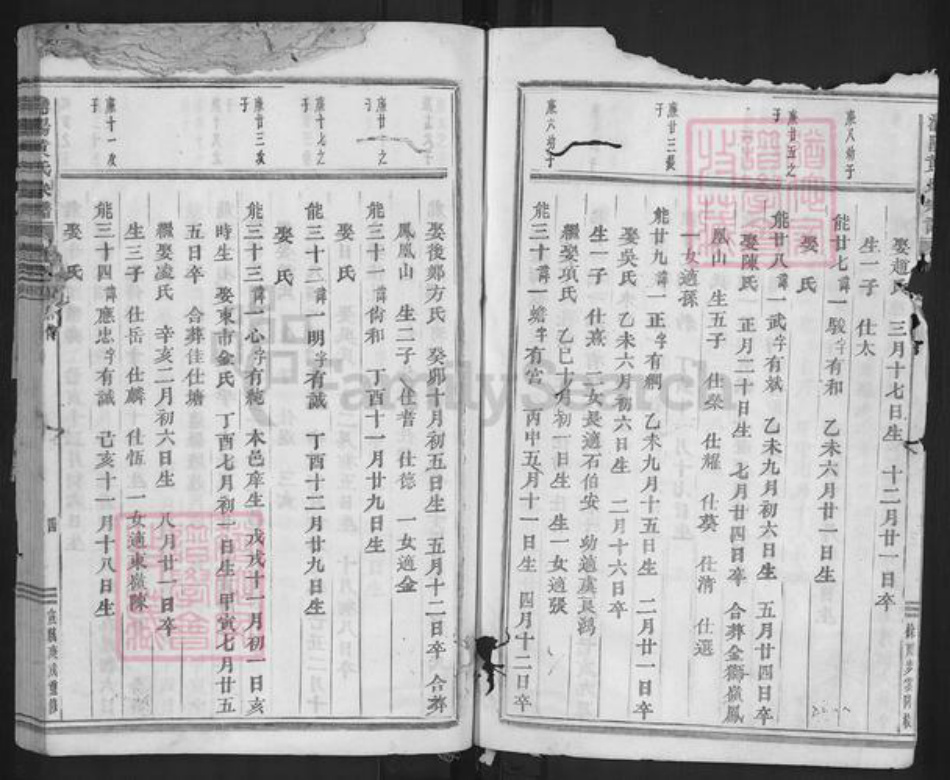 康八幼子
康廿五之
子
康廿三長
子
康六幼子
娶趙氏 三月十七日生 十二月廿一日卒
生一子 仕太
能廿七諱一駿字有和 乙未六月廿一日生
娶 氏
能廿八諱一武字有斌 乙未九月初六日生 五月廿四日卒
娶陳氏 正月二十日生 七月廿四日卒 合葬金獅嶽鳳
凰山 生五子 仕榮 仕耀 仕葵 仕清 仕選
一女適孫
能廿九諱一正字有綱 乙未九月十五日生 二月廿一日卒
娶吳氏 乙未六月初六日生 二月十六日卒
生一子 仕熹 二女長適石伯安 幼適虞良鴻
繼娶項氏 乙巳十月初一日生 生一女適張
能三十諱一蟾字有宮 丙申五月十一日生 四月十二日卒
康廿一之
子
康十七之
子
康廿三次
子
康十一次
子
娶後鄭方氏 癸卯十月初五日生 五月十二日卒 合葬
鳳凰山 生二子 仕耆 仕德 一女適金
能三十一諱尚和 丁酉十一月廿九日生
娶 氏
能三十二諱一明字有誠 丁酉十二月廿九日生
娶 氏
能三十三諱一心字有純 本邑庠生 戊戌十一月初一日亥
時生 娶東市金氏 丁酉七月初一日生 甲寅七月廿五
五日卒 合葬佳仕塘
繼娶凌氏 辛亥二月初六日生 八月廿一日卒
生三子 仕岳 仕麟 仕恆 一女適東嶽陳
能三十四諱應忠字有誠 己亥十一月十八日生
娶 氏
四
FamilySearch